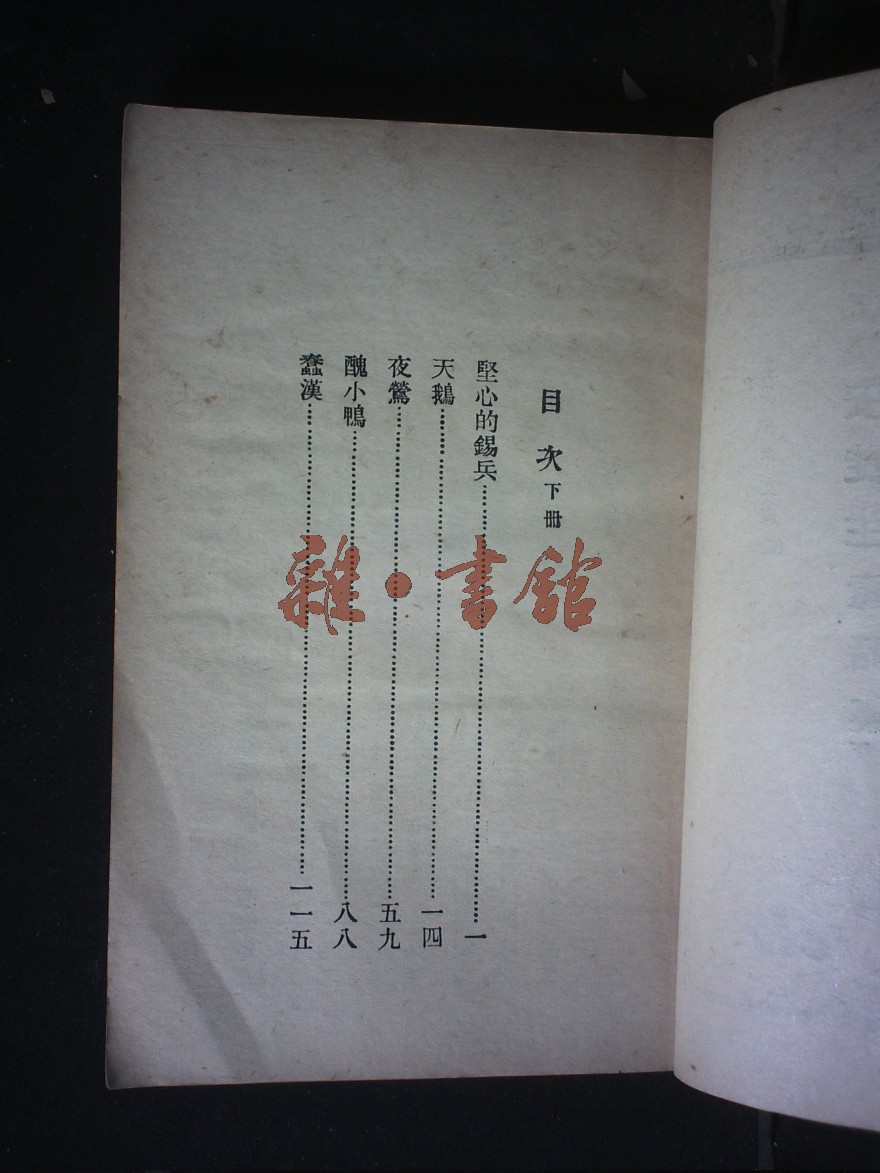 目次下冊
堅心的錫兵……一
天鵝……一四
夜鶯……五九
醜小鴨……八八
蠢漢……一一五
雜·書館